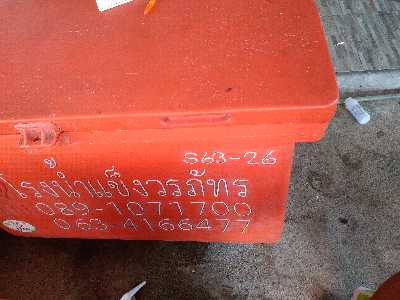 S63-26
โรงน้ำแข็งวรภัทร
089-1071700
063-4166477